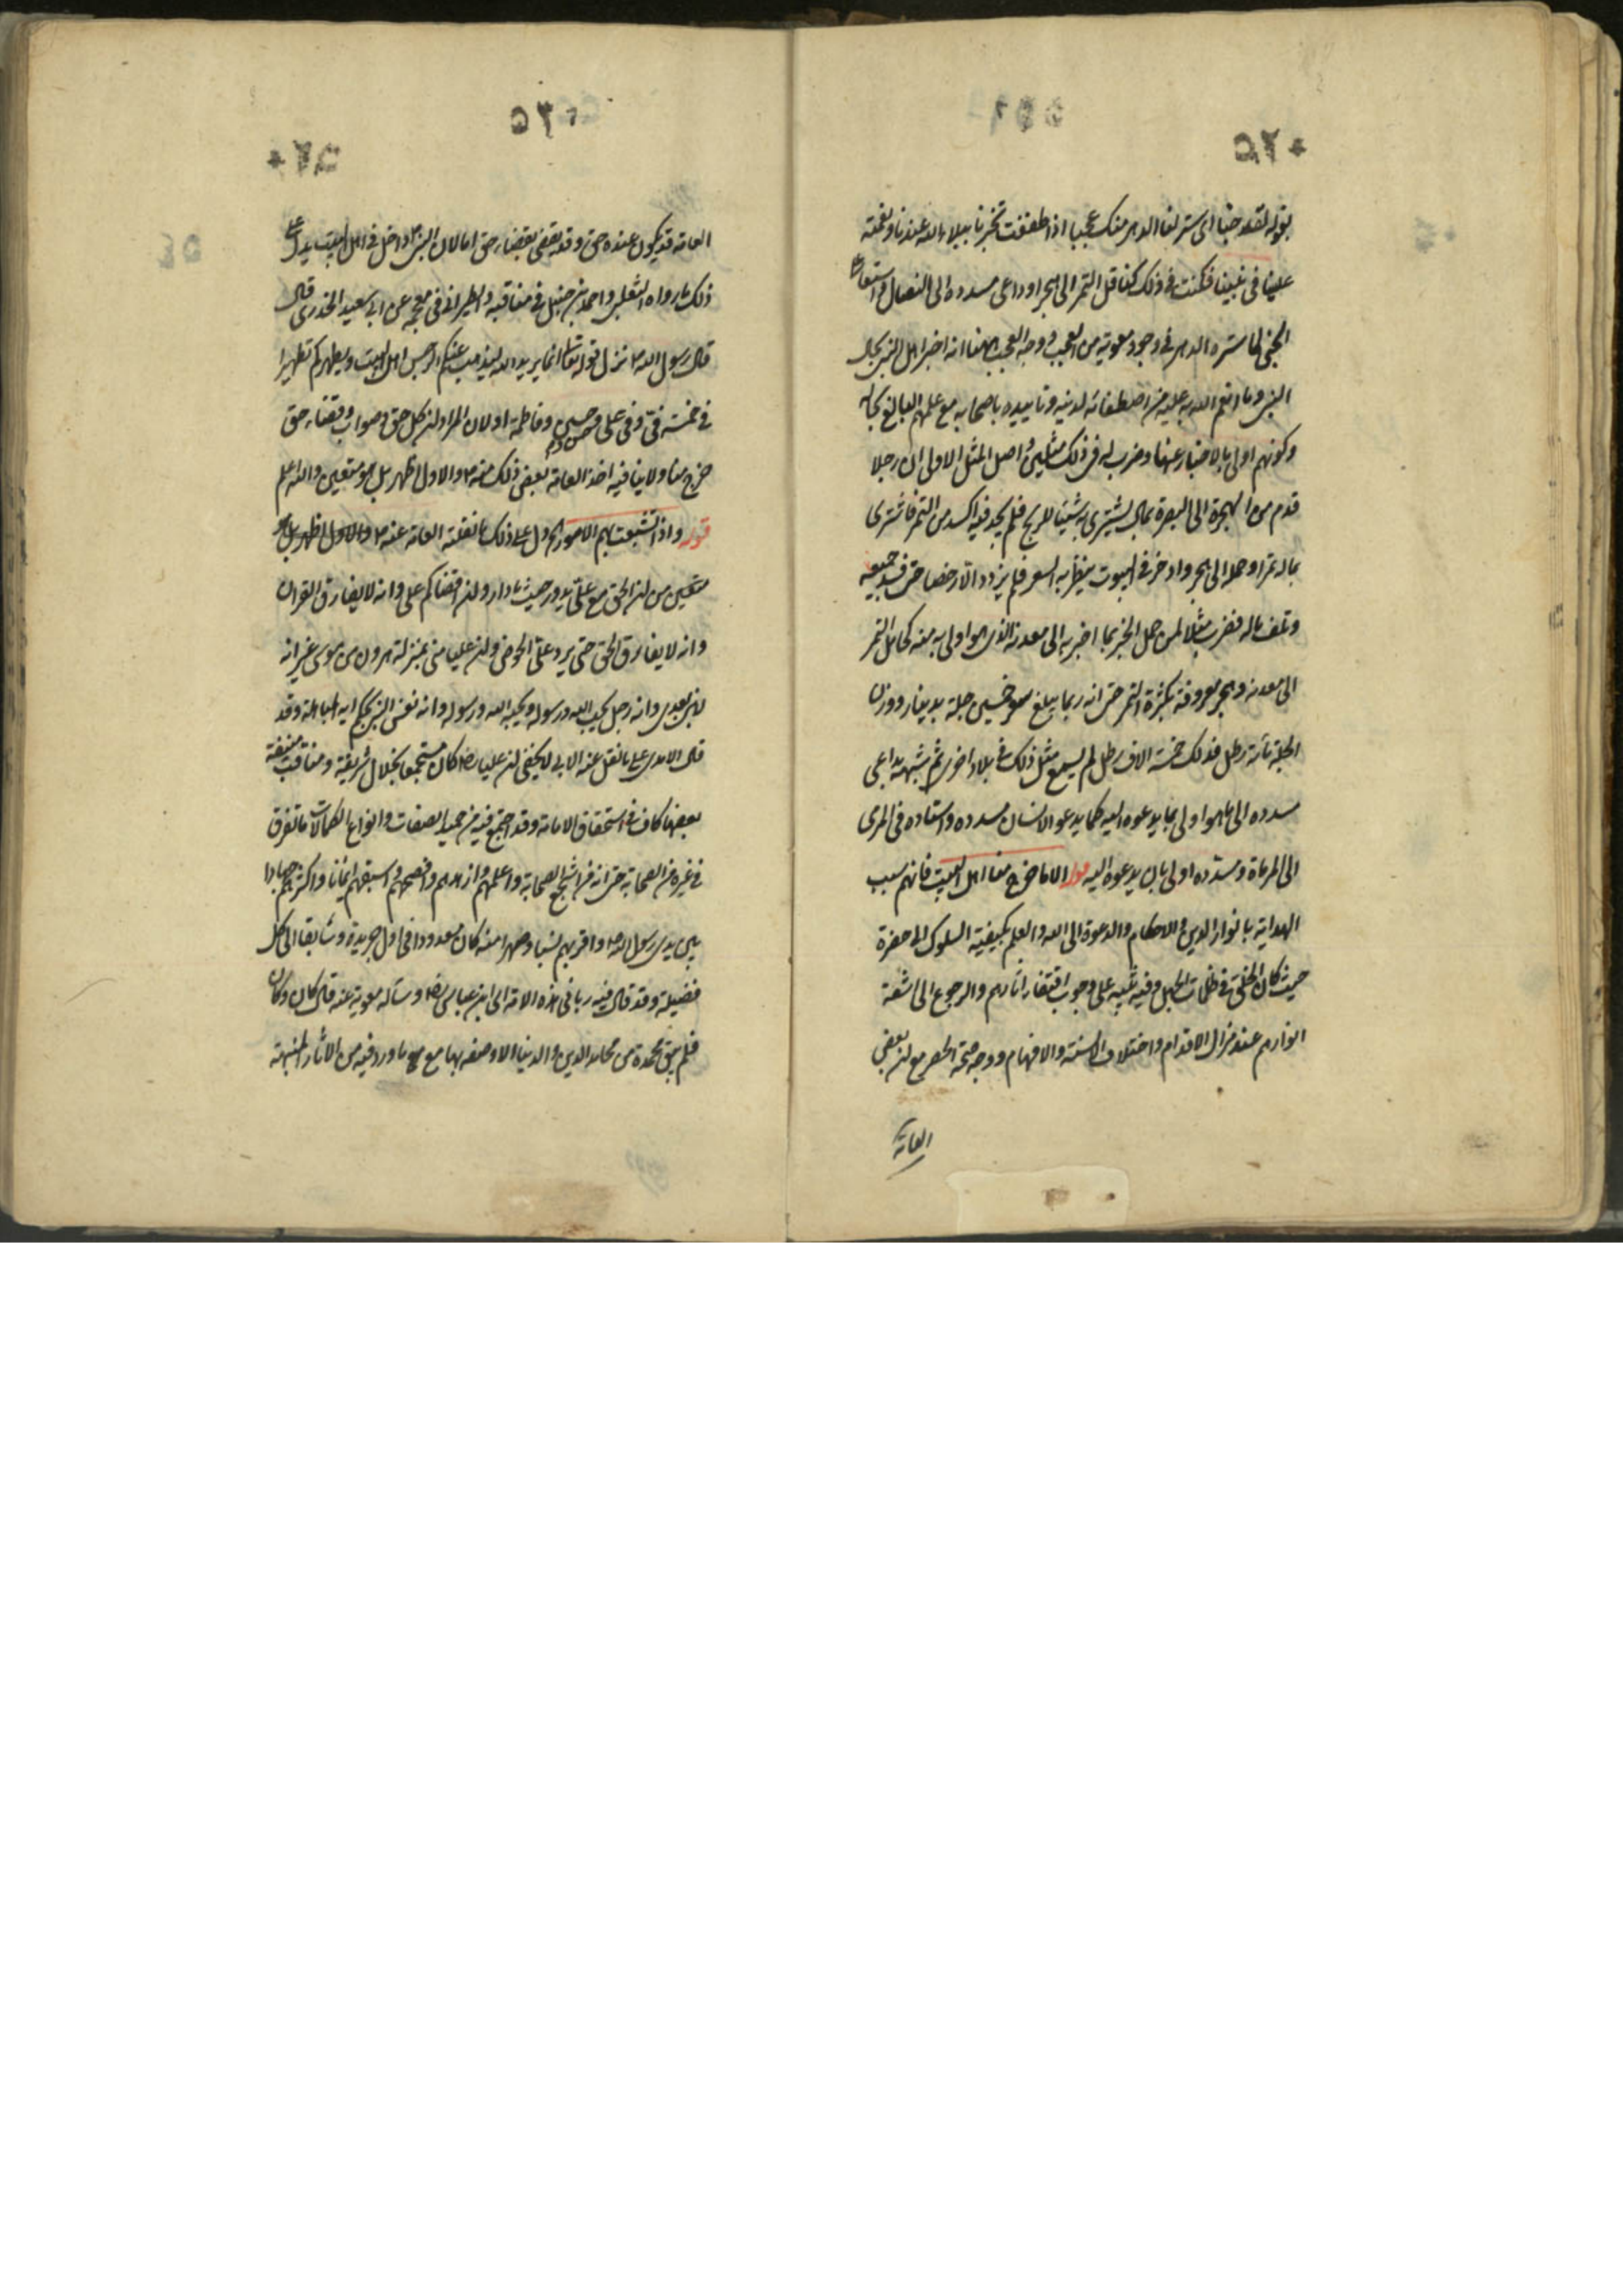 ۵۲۰
بقوله لقد خبا اى ستر لنا الدهر منك عجبا اذ طفقت تخبرنا ببلاء الله عندنا ونعمته
علينا فى نبينا فكنت فى ذلك كناقل التمر الى هجر او داعى مسدده الى النضال واستعار
الخبى لما ستره الدهر فى وجود معوية من العجب ووجه العجب ههنا انه اخبر اهل النبى بحال
النبى وما انعم الله به عليه من اصطفائه لدينه وتاييده باصحابه مع علمهم البالغ بحاله
وكونهم اولى بالاخبار عنها وضرب له فى ذلك مثلين اصل المثل الاولى ان رجلا
قدم من هجر الى البصرة بمال يشترى به شيئا للربح فلم يجد فيه اكسد من التمر فاشترى
بماله تمرا وحمله الى هجر وادخره فى البيوت ينتظر به السعر فلم يزدد الا رخصا حتى فسد جميعه
وتلف ماله فضرب مثلا لمن حمل الخبر بما اخبر به الى معدنه الذى هو اولى به منه كحامل التمر
الى معدنه وهجر معروفة بكثرة التمر حتى انه ربما يبلغ سعر خمسين جلة بدينار ووزن
الجلة مائة رطل فذلك خمسة الاف رطل لم يسمع مثل ذلك فى بلاد اخرى ثم شبهه بداعى
مسدده الى ما هو اولى بما يدعوه اليه كما يدعو الانسان مسدده واستاده فى الرمى
الى المرماة ومسدده اولى بان يدعوه اليه قوله الا ما خرج منا اهل البيت فانهم سبب
الهداية بانوار الدين والاحكام والدعوة الى الله والعلم بكيفية السلوك الى حضرة
حيث كان الخلق فى ظلمات الجهل وفيه تنبيه على وجوب اقتفاء اثارهم والرجوع الى اشعة
انوارهم عند مزال الاقدام واختلاف الالسنة والافهام ووجه صحة الحصر مع ان بعض
العامة
۵۲۰
۵۲۰
العامة قد يكون عنده حق وقد يقضى بقضاء حق اما لان النبى داخل فى اهل البيت يدل على
ذلك ما رواه الثعلبى واحمد بن حنبل فى مناقبه والطبرانى فى معجمه عن ابى سعيد الخدرى قال
قال رسول الله نزل قوله تعالى انما يريد الله ليذهب عنكم الرجس اهل البيت ويطهركم تطهيرا
فى خمسة فى وفى على وحسن وحسين وفاطمة او لان المراد ان كل حق وصواب وقضاء حق
خرج منا ولا ينافيه اخذ العامة بعض ذلك منه والاول اظهر بل هو متعين والله اعلم
قوله واذا تشعبت بهم الامور دل على ذلك ما نقلته العامة عنه والاول اظهر بل هو
متعين من ان الحق مع على يدور حيث ما دار وان اقضاكم على وانه لا يفارق القران
وانه لا يفارق الحق حتى يرد على الحوض وان عليا منى بمنزلة هرون من موسى غير انه
لا نبى بعدى وانه رجل يحب الله ورسوله ويحبه الله ورسوله وانه نفس النبى بحكم اية المباهلة وقد
قال الامدى على ما نقل عنه الابى لا يخفى ان عليا رض كان مستجمعا لخلال شريفة ومناقب منيفة
بعضها كاف فى استحقاق الامامة وقد اجتمع فيه من حميد الصفات وانواع الكمالات ما تفرق
فى غيره من الصحابة حتى انه من اشجع الصحابة واعلمهم وازهدهم وافصحهم واسبقهم ايمانا واكثرهم جهادا
بين يدى رسول الله واقربهم نسبا وصهرا منه كان معدودا فى اول جريدة وسابقا الى كل
فضيلة وقد قال فيه ربانى هذه الامة ابن عباس رض وساله معوية عنه قال كان وكان
فلم يبق محمدة من محامد الدين والدنيا الا وصفه بها مع ما ورد فيه من الاثار المنبهة